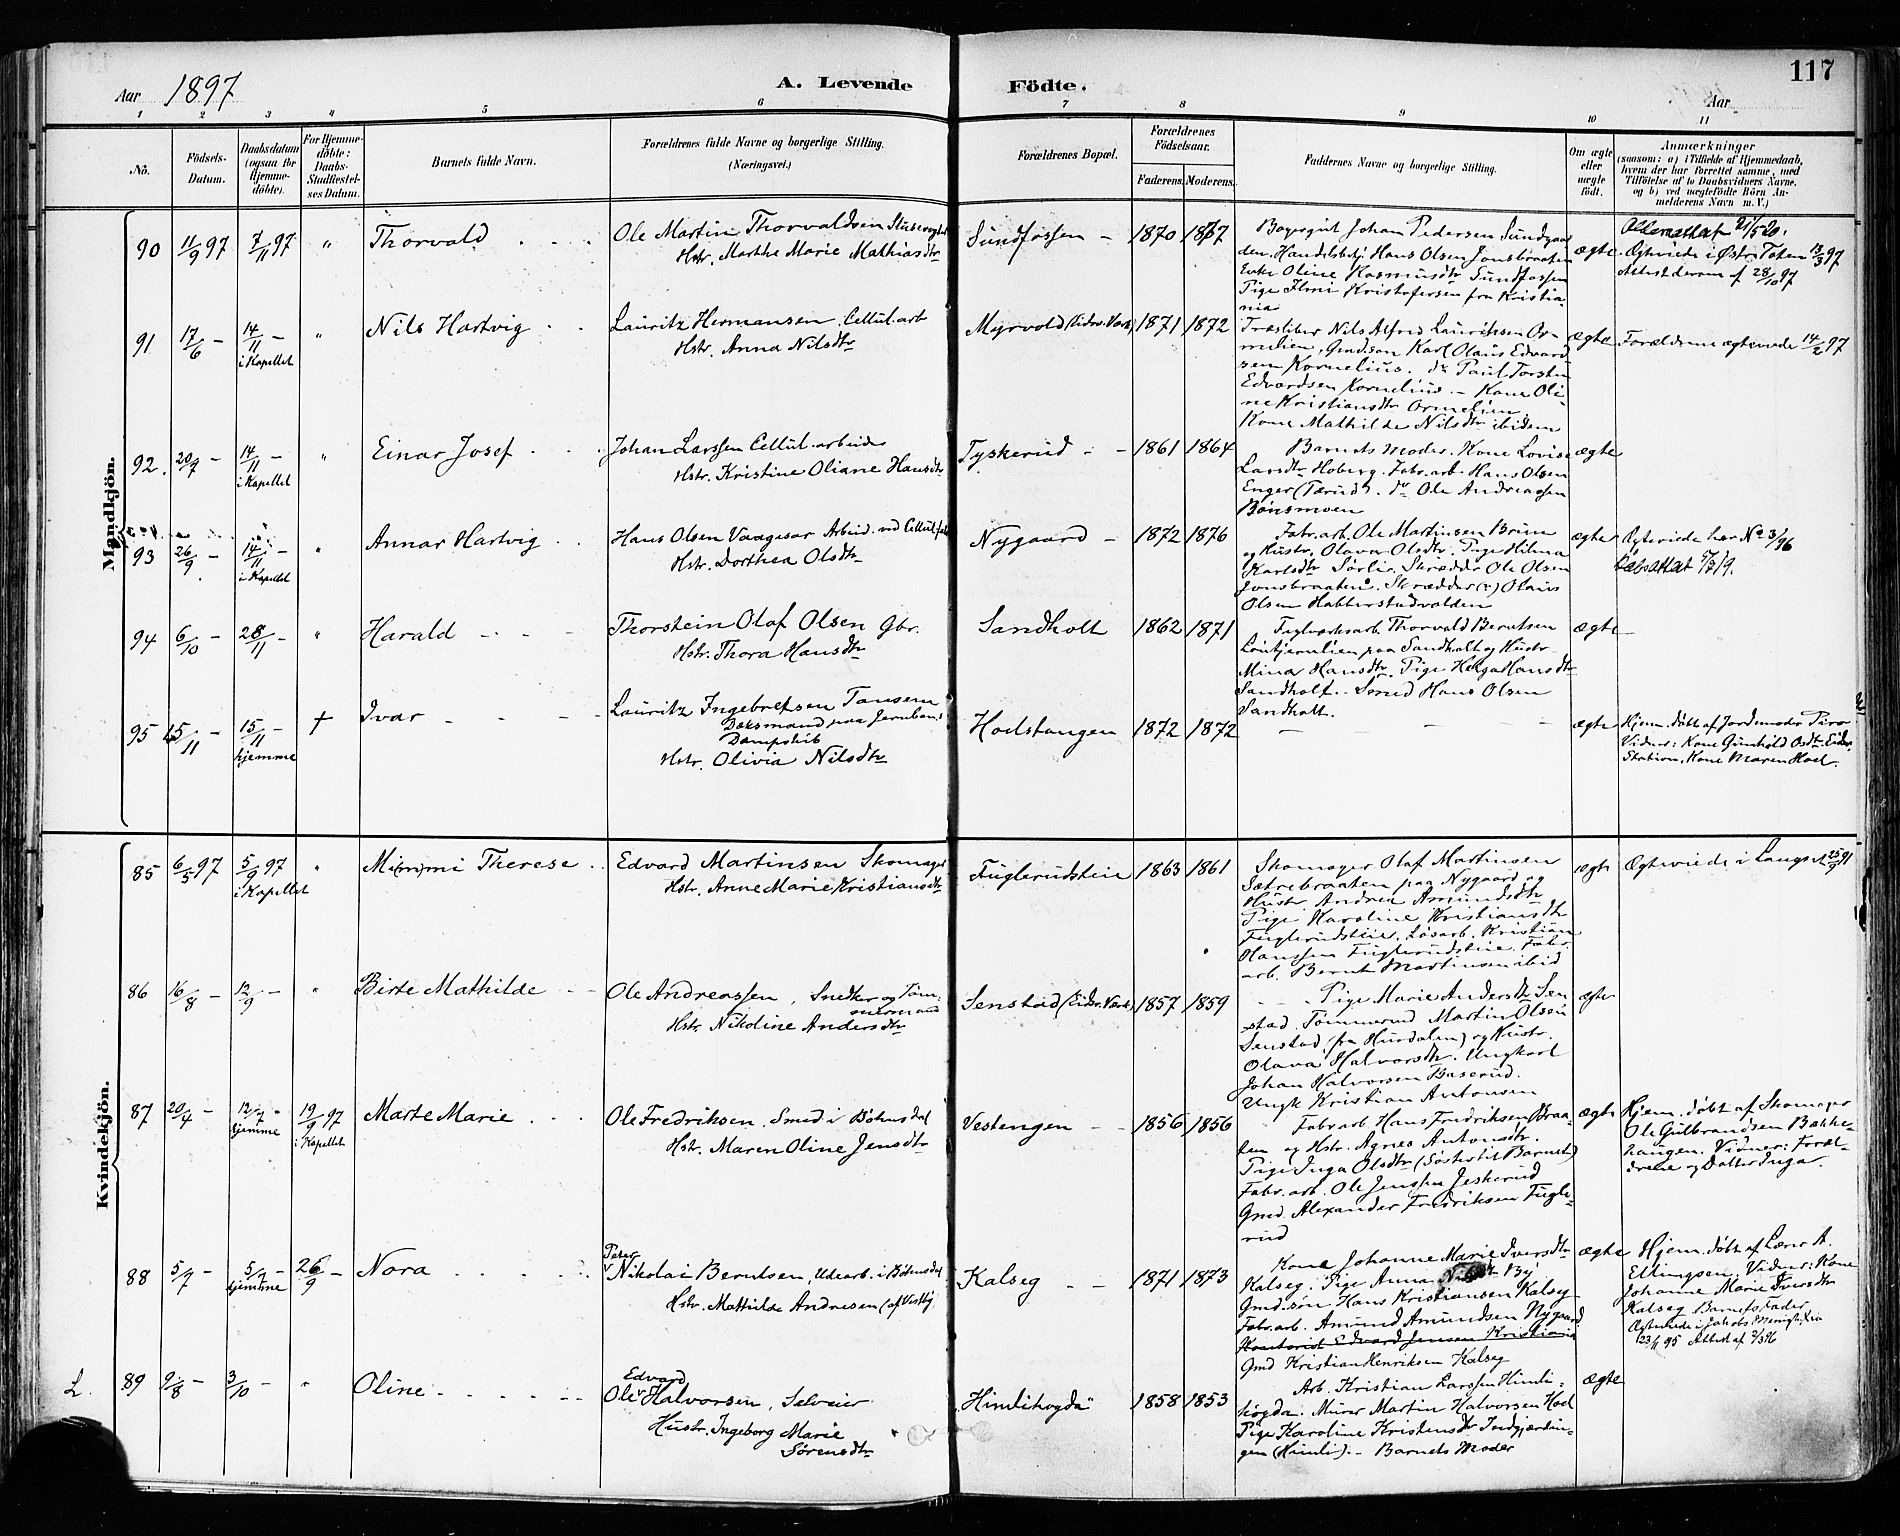 Aar 1897
A. Levende
Födte.
117
Aar
1 2 3 4 5 6 7 8 9 10 11
No.
Födsels-
Datum.
Daabsdatum
(ogsaa for
Hjemme-
döbte).
For Hjemme-
döbte:
Daabs-
Stadfæstel-
ses Datum.
Barnets fulde Navn.
Forældrenes fulde Navne og borgerlige Stilling.
(Næringsvei.)
Forældrenes Bopæl.
Forældrenes
Födselsaar.
Faderens.
Moderens.
Faddernes Navne og borgerlige Stilling.
Om ægte
eller
uægte
født.
Anmærkninger
(saasom: a) i Tilfælde af Hjemmedaab,
hvem der har forrettet samme, med
Tilföielse af to Daabsvidners Navne,
og b) ved uægtefödte Börn An-
melderens Navn m. V.)
Mandkjön.
90 11/9 97 7/11 97 "
Thorvald
Ole Martin Thorvaldsen
Hstr. Marthe Marie Mathiasdtr
Sundfossen
1870 1867
Johan Pedersen Sundgaa
den. Hans Olsen Jonsbraaten
Enke Oline Rasmusdtr Sundfossen
Pige Kristofersen fra Kristia
nia
ægte
21/5 20.
Ægteviede i Østr. Toten 13/3 97
Attest derom af 28/10 97
91 17/6 - 14/11 - "
i Kapellet
Nils Hartvig
Lauritz Hermansen, Cellul. arb
Hstr. Anna Nilsdtr
Myrvold (Eidsv. Værk)
1871 1872
Træsliber Nils Alfred Lauritsen Or-
melien, Gmd.søn Karl Olaus Edvard
sen Kornelius. do Paul Torstein
Edvardsen Kornelius. - Kone Oli-
ne Kristiansdtr Ormelien,
Kone Mathilde Nilsdtr ibidem
ægte
Forældrene ægteviede 14/2 97
92. 20/7 - 14/11 - "
i Kapellet
Einar Josef
Johan Larssen Cellul. arbeider
Hstr. Kristine Oliane Hansdtr
Tyskerud
1861 1864
Barnets Moder. Kone Lovise
Larsdtr Hoberg. Fabr.arb. Hans Olsen
Enger (Tærud). do Ole Andreassen
Bønsmoen
ægte
93 26/9 - 14/11 - "
i Kapellet
Annar Hartvig
Hans Olsen Vaagesar Arbeid. ved Cellul. fab
Hstr. Dorthea Olsdtr
Nygaard
1872 1876
Fabr. arb. Ole Martinsen Brun
og Hustr. Olava Olsdtr. Pige Hilma
Karlsdtr Sørlie. Skrædder Ole Olsen
Jonsbraaten. Skrædder Olaus
Olsen Habberstadvolden
ægte
Ægteviede her No 3/96
Daabsattest
94 6/10 - 28/11 - "
Harald
Thorstein Olaf Olsen Gbr.
Hstr. Thora Hansdtr
Sandholt
1862 1871
Thorvald Berntsen
paa Sandholt og Hustr.
Mina Hansdtr. Pige Helga Hansdtr
Sandholt. Smed Hans Olsen
Sandholt.
ægte
95 15/11 15/11 - +
hjemme
Ivar
Lauritz Ingebretsen Tansem
Dæksmand paa Jernban.s
Dampskib
Hstr. Olivia Nilsdtr
Hoelstangen
1872 1872
ægte
Hjem. døbt af Jordemoder Piro
Vidner: Kone Gunhild Osdtr. Eidsv.
Station, Kone Maren Hoel.
Kvindekjön.
85 6/5 97 5/9 97 "
i Kapellet
Mi(m)mi Therese
Edvard Martinsen Skomager
Hstr. Anne Marie Kristiansdtr
Fuglerudsteie
1863 1861
Skomager Olaf Martinsen
Sætrebraaten paa Nygaard og
Hustr. Andrea Amundsdtr
Pige Karoline Kristiansdtr
Fuglerudsteie. Løsarb. Kristian
Hanssen Fuglerudsteie. Fabr.
arb. Bernt Martinsen ibid
ægte
Ægteviede i Langset 25/9 91
86 16/8 - 12/9 - "
Birte Mathilde
Ole Andreassen, Snekker og Tøm-
mermand
Hstr. Nikoline Andersdtr
Senstad (Eidsv. Værk)
1857 1859
Pige Marie Andersdtr Sen
stad. Tømmermd Martin Olsen
Senstad (fra Hurdalen) og Hustr.
Olava Halvorsdtr. Ungkarl
Johan Halvorsen Baserud.
Ungk Kristian Antonsen
ægte
87 20/4 - 12/7 - 19/9 97
hjemme i Kapellet
Marte Marie
Ole Fredriksen, Smed i Bøhnsdal
Hstr. Maren Oline Jensdtr
Vestengen
1856 1856
Fabr arb Hans Fredriksen Braa-
ten og Hstr. Agnes Antonsdtr.
Pige Inga Olsdtr (Søster til Barnet)
Fabr. arb. Ole Jenssen Jeskerud
Gmd. Alexander Fredriksen Fugle-
rud
ægte
Hjem. døbt af Skomager
Ole Gulbrandsen Bakke-
haugen. Vidner: Foræl-
drene og Datter Inga.
88 5/7 - 5/7 - 26/9 -
hjemme
Nora
Peter
Nikolai Berntsen, Udearb. i Bøhnsdal
Hstr. Mathilde Andresen (af
Kalseg
1871 1873
Kone Johanne Marie Iversdtr
Kalseg. Pige Anna By
Gmd. søn Hans Kristiansen Kalseg
Fabr. arb. Amund Amundsen Nygaard
Kontorist Edvard Jensen Kristiania
Gmd Kristian Henriksen Kalseg
ægte
Hjem. døbt af Lærer A.
Ellingsen. Vidner: Kone
Johanne Marie Iversdtr
Kalseg Barnets fader
Ægteviede i Jakobs Menighed, Kra
23/11 95 Attest af 2/3 96
L. 89 9/8 - 3/10 - "
Oline
Edvard
Ole Halvorsen, Selveier
Hustr. Ingeborg Marie
Sørensdtr
Himlihøgda
1858 1853
Arb. Kristian Larssen Himli-
høgda. Murer Martin Halvorsen Hoel
Pige Karoline Kristensdtr
gen (Himli). - Barnets Moder
ægte